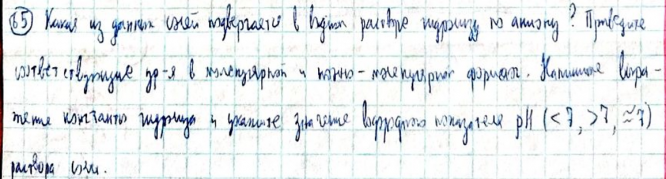 65) Какая из данных солей подвергается в водном растворе гидролизу по аниону? Приведите
соответствующие ур-я в молекулярной и ионно-молекулярной формах. Напишите выра-
жение константы гидролиза и укажите значение водородного показателя pH (<7, >7, ≈7)
раствора соли.